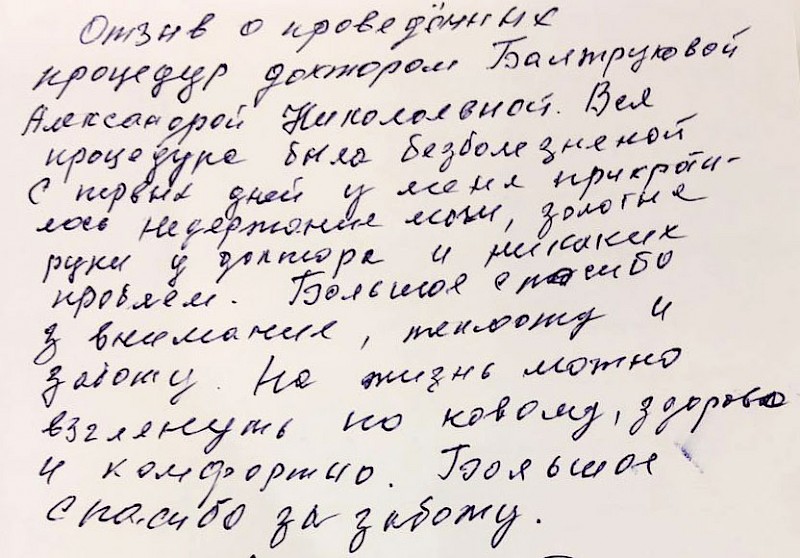 Отзыв о проведённых
процедур доктором Балтруковой
Александрой Николаевной. Вся
процедура была безболезненой
С первых дней у меня прикрати-
лось недержание мочи, золотые
руки у доктора и никаких
проблем. Большое спасибо
з внимание, теплоту и
заботу. На жизнь можно
взглянуть по новому, здорово
и комфортно. Большое
спасибо за заботу.